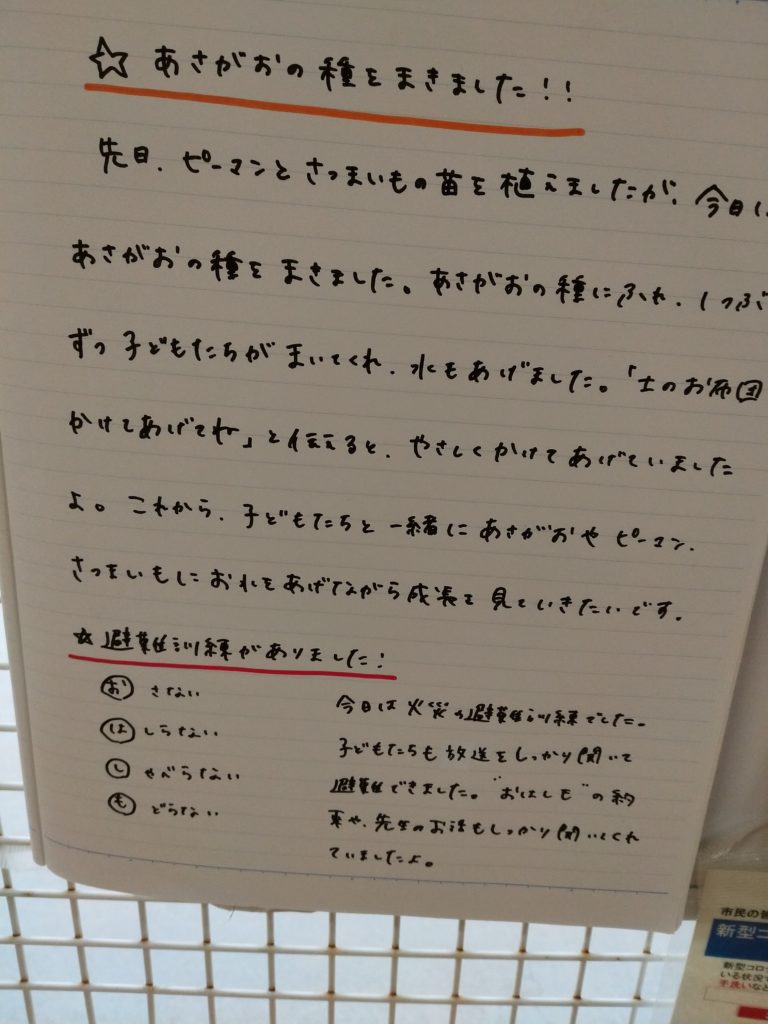 ☆ あさがおの種をまきました!!
先日、ピーマンとさつまいもの苗を植えましたが、今日は
あさがおの種をまきました。あさがおの種にふれ、1つぶ
ずつ子どもたちがまいてくれ、水もあげました。「土のお布団
かけてあげてね」と伝えると、やさしくかけてあげていました
よ。これから、子どもたちと一緒にあさがおやピーマン、
さつまいもにお水をあげながら成長を見ていきたいです。
☆避難訓練がありました!
おさない
はしらない
しゃべらない
もどらない
今日は火災の避難訓練でした。
子どもたちも放送をしっかり聞いて
避難できました。"おはしも"の約
束や、先生のお話もしっかり聞いてくれ
ていましたよ。
市民の皆
新型コ
新型コロ
いる状況で
手洗いなど